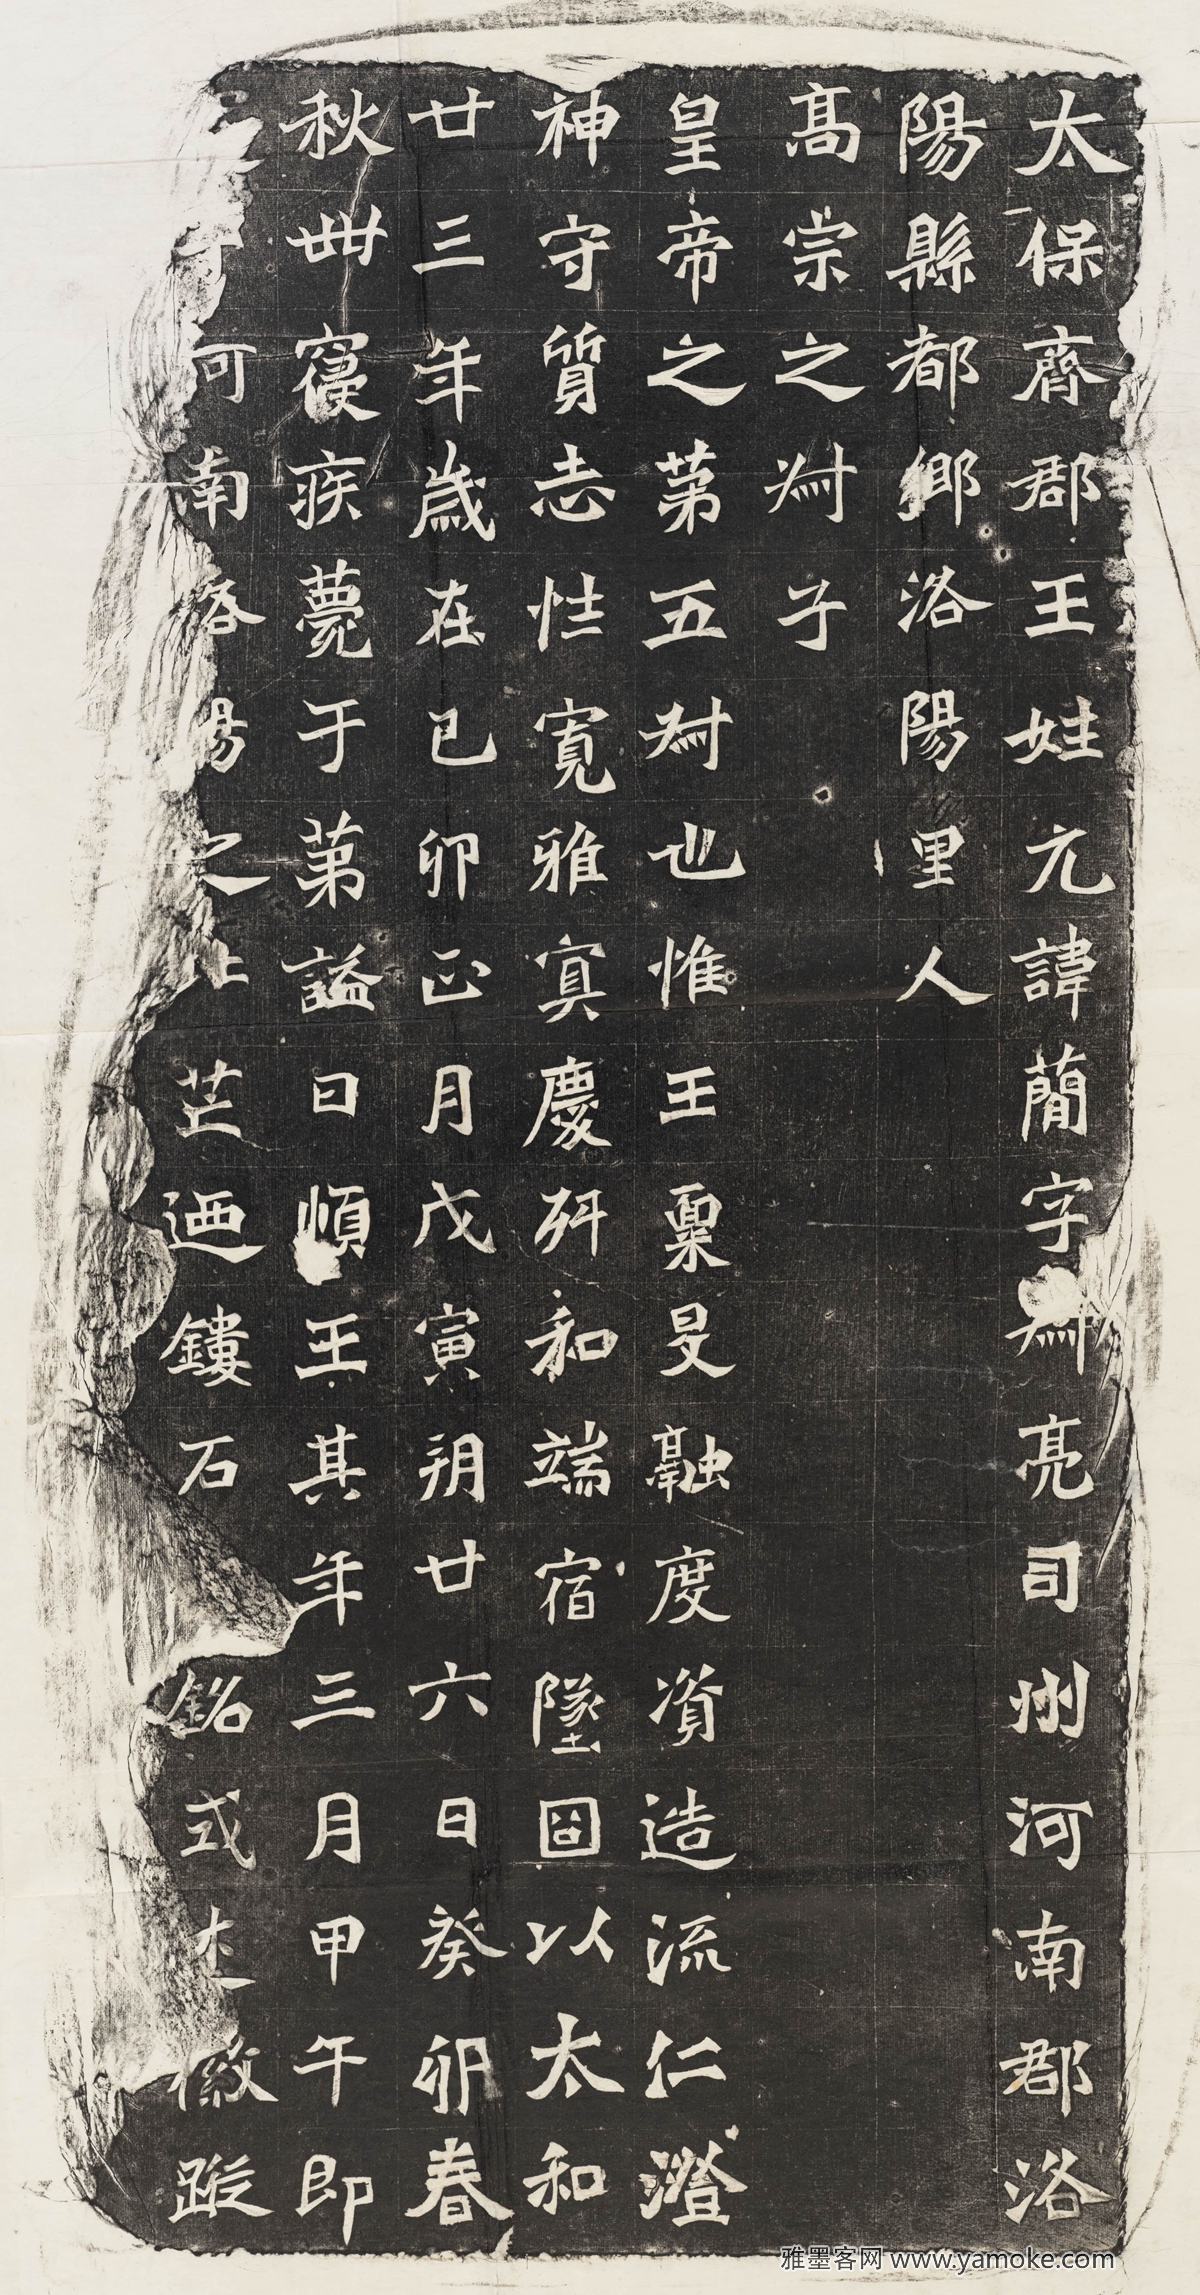 太保齊郡王姓元諱蕳字亮司州河南郡洛
陽縣都鄉洛陽里人
高宗之叔子
皇帝之第五叔也惟王稟旻融度資造流仁澄
神守質志性寬雅寘慶舛和端宿墜固以太和
廿三年歲在己卯正月戊寅朔廿六日癸卯春
秋卌寑疾薨于第謚曰順王其年三月甲午即
河南洛陽之芒迺鏤石銘式徽蹤
雅墨客网 www.yamoke.com